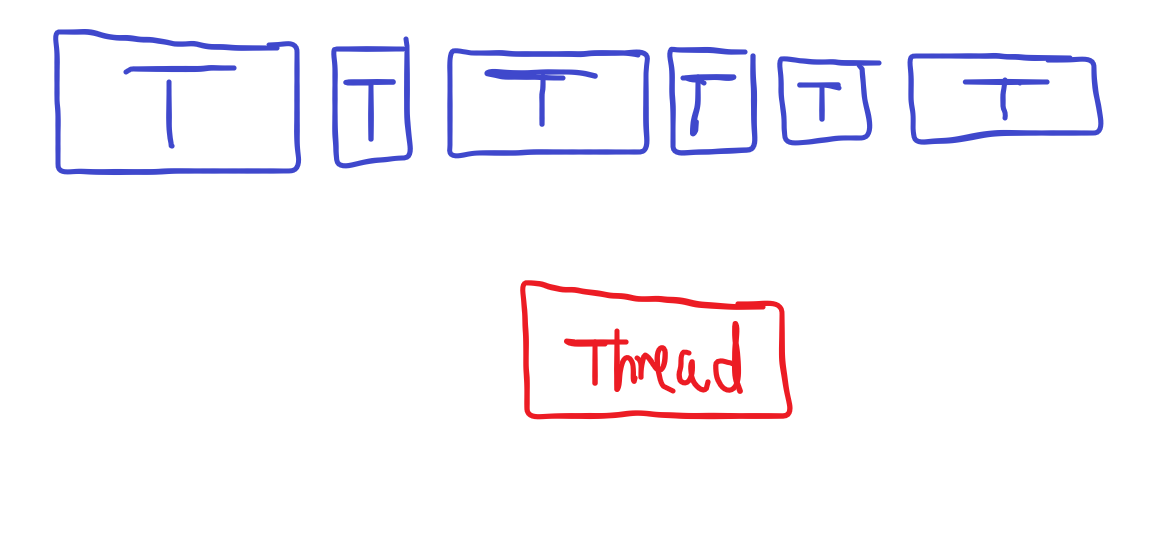 T T T T T T
Thread